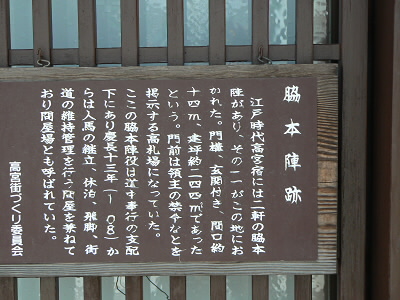 脇本陣跡
江戸時代高宮宿には二軒の脇本
陣があり、その一つがこの地にお
かれた。門構、玄関付き、間口約
十四m、建坪約二四四㎡であった
という。門前は領主の禁令などを
掲示する高札場になっていた。
ここの脇本陣役は道中奉行の支配
下にあり慶長十三年(一六〇八)か
らは人馬の継立、休泊、飛脚、街
道の維持管理を行う問屋を兼ねて
おり問屋場とも呼ばれていた。
高宮街づくり委員会